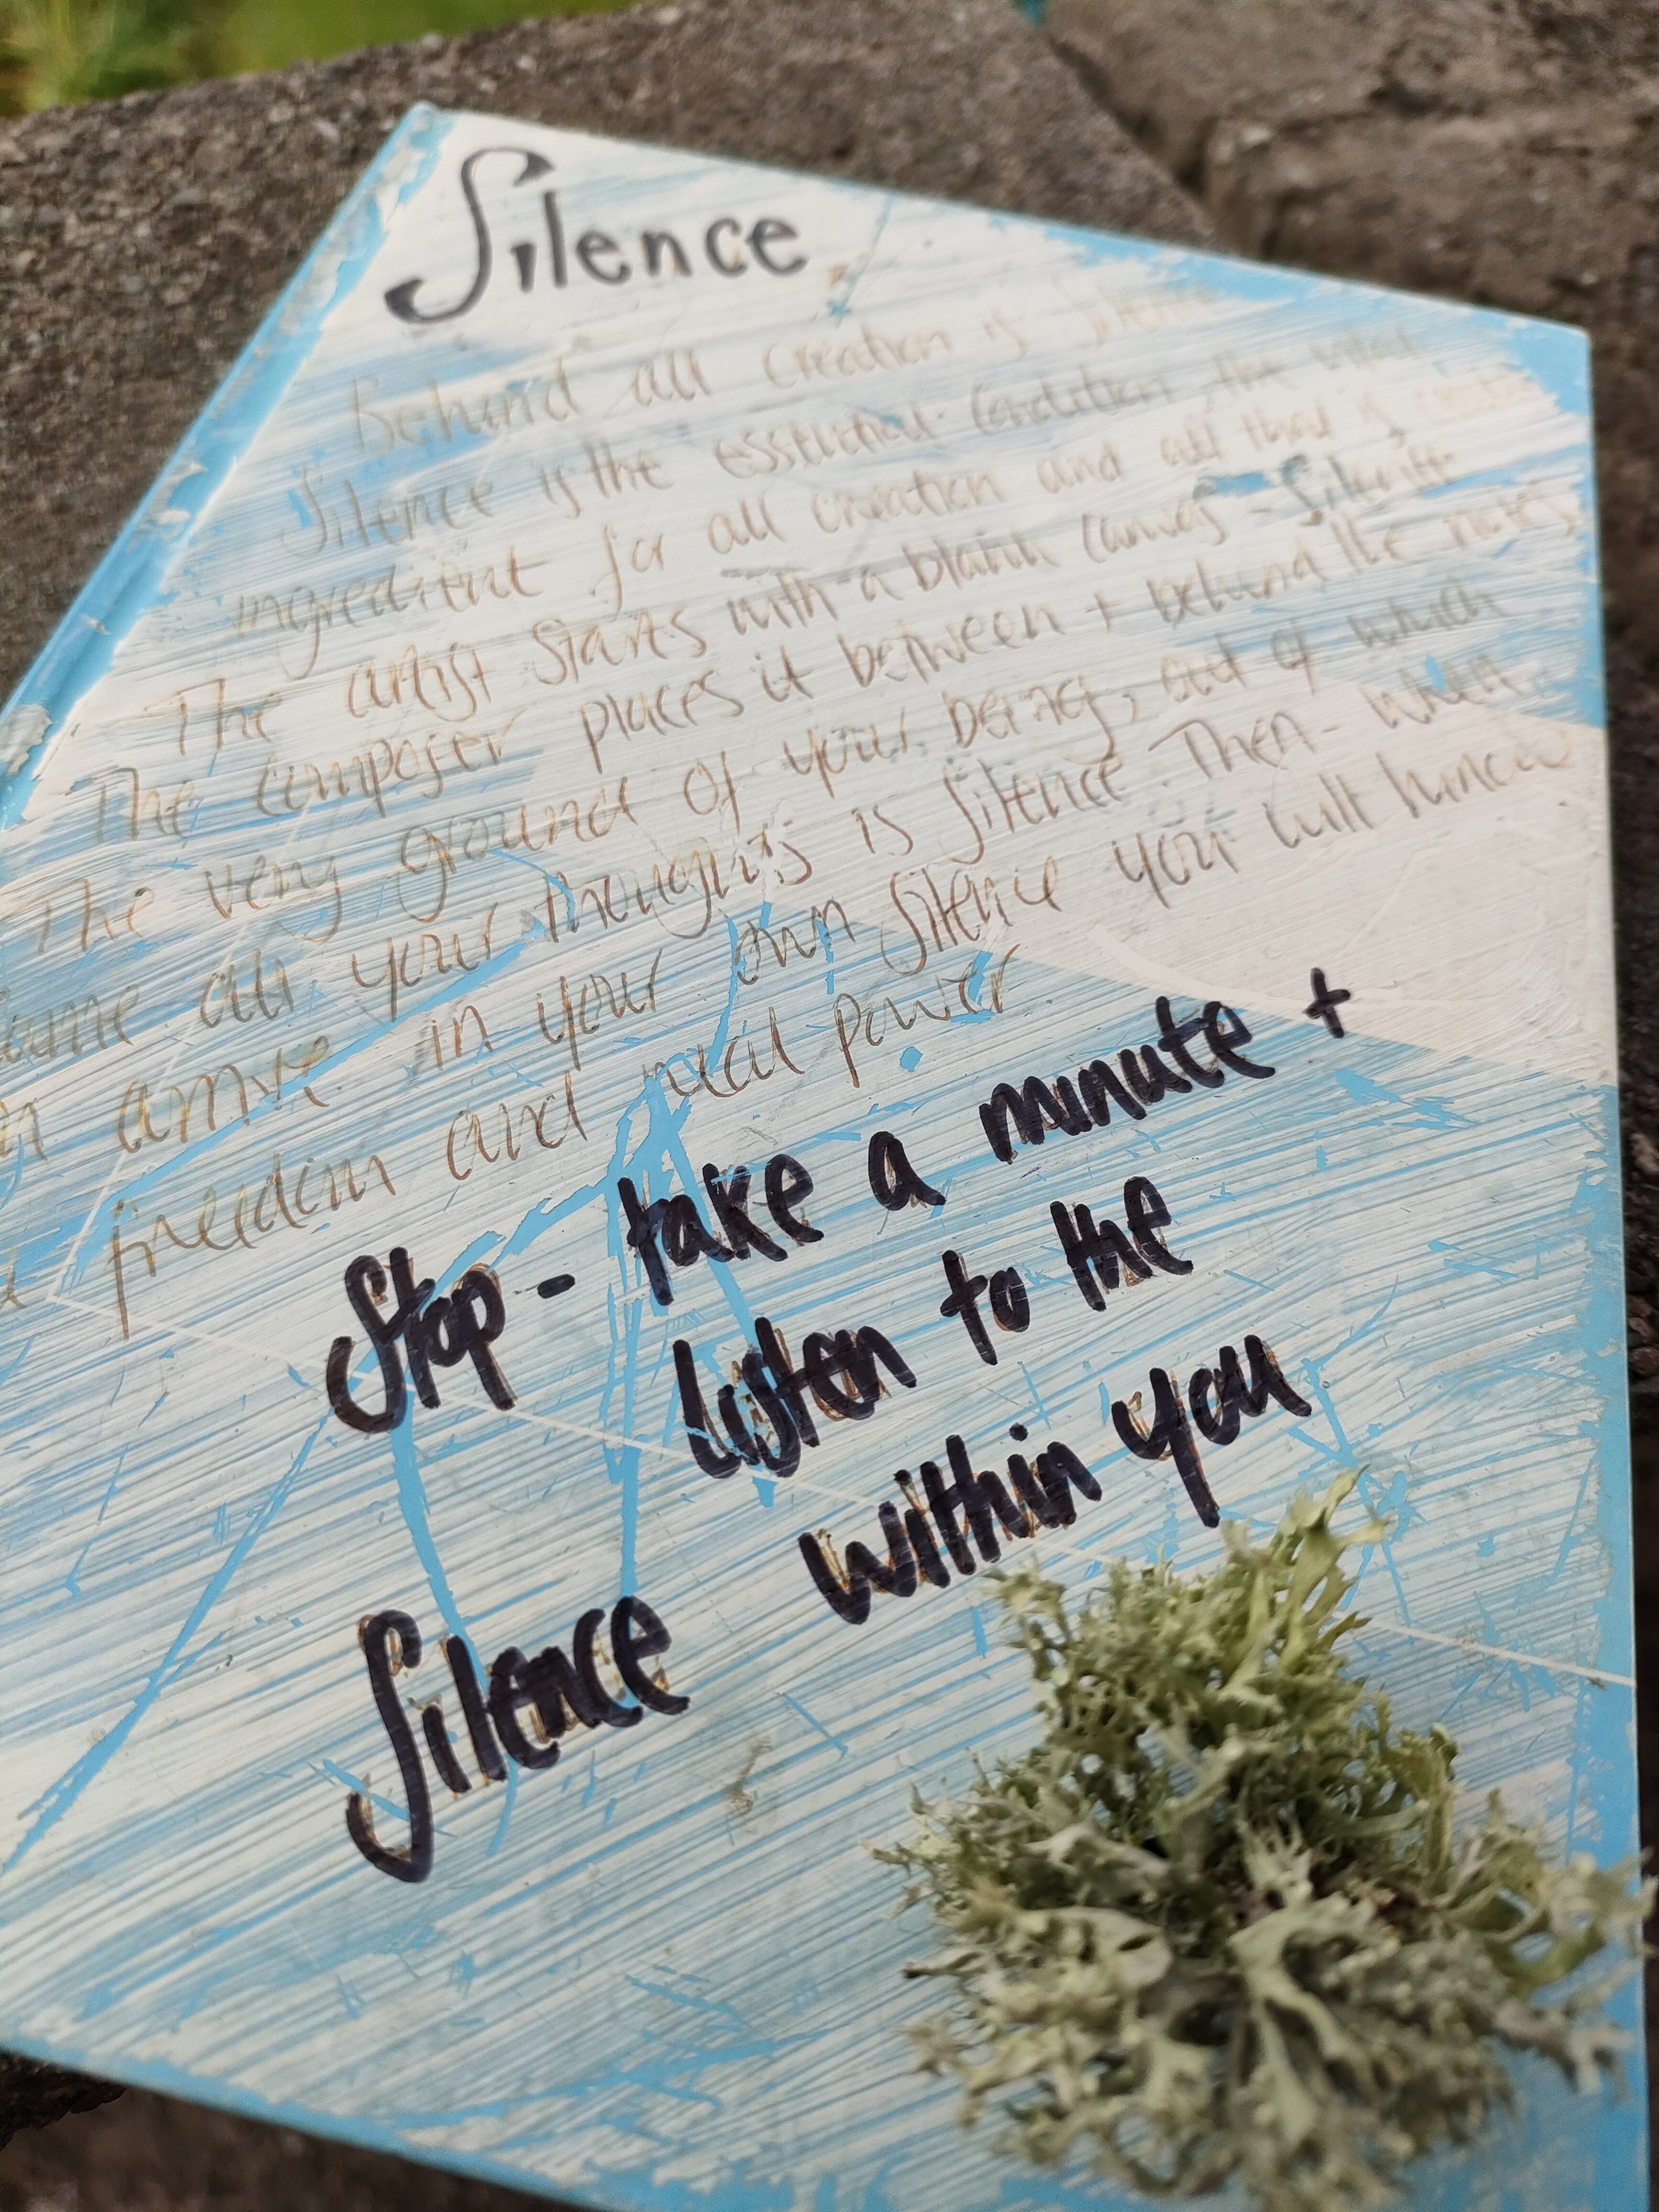 Silence
Behind all creation is silence
Silence is the essential condition the vital
ingredient for all creation and all that is
The artist starts with a blank canvas - Silence
The composer places it between + behind the notes
The very ground of your being, out of which
all your thoughts is silence. Then - when
arrive in your own silence you will know
freedom and real power
Stop - take a minute +
listen to the
Silence within you